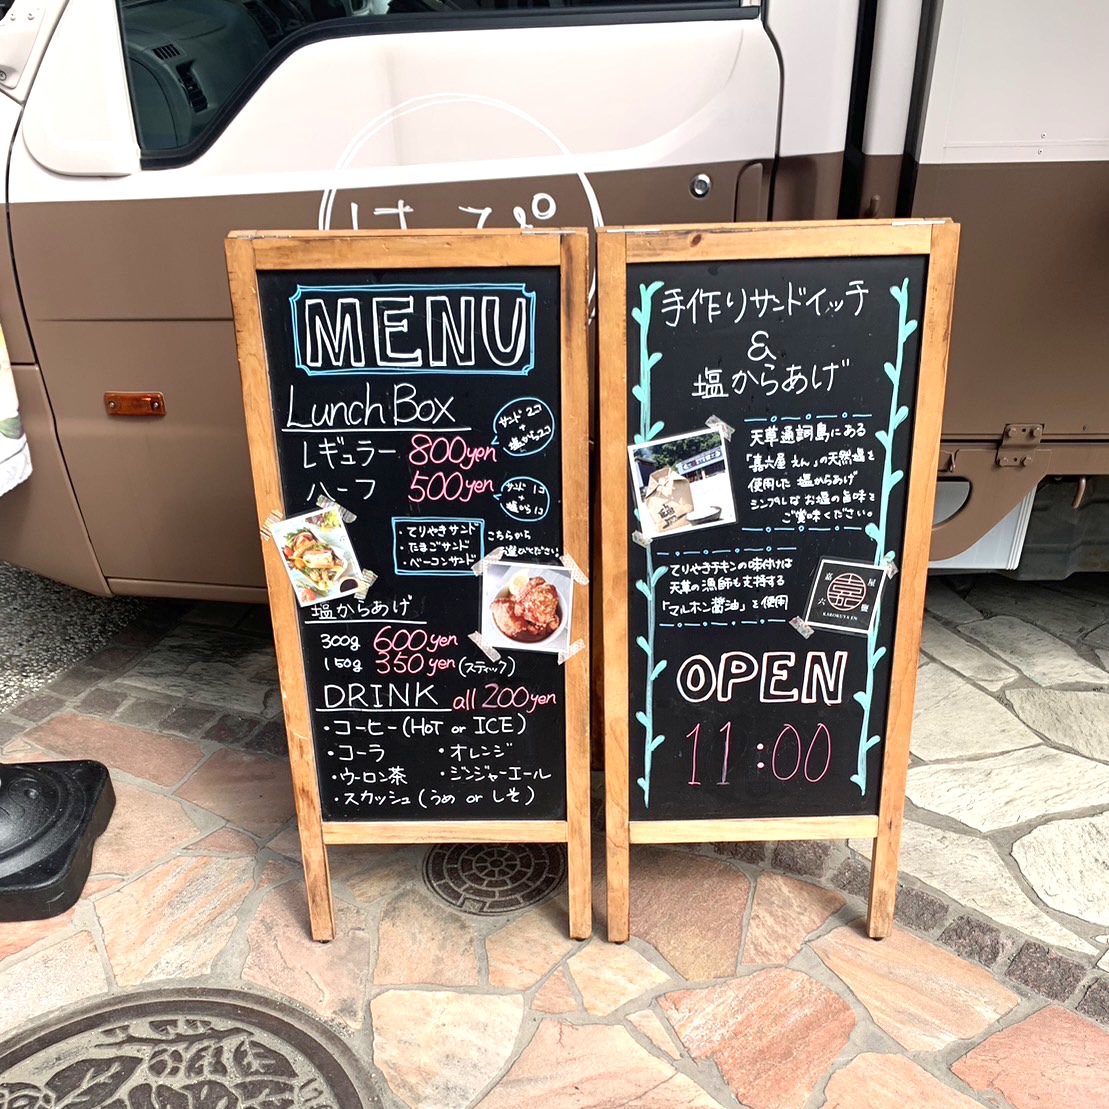 は ぴ
MENU
Lunch Box
レギュラー 800yen
サンド 2コ
+
塩から2コ
ハーフ 500yen
サンド 1コ
+
塩から1コ
・てりやきサンド
・たまごサンド
・ベーコンサンド
こちらから
お選びください
塩からあげ
300g 600yen
150g 350yen (スティック)
DRINK all 200yen
・コーヒー(HOT or ICE)
・コーラ ・オレンジ
・ウーロン茶 ・ジンジャーエール
・スカッシュ(うめ or しそ)
手作りサンドイッチ
&
塩からあげ
天草通詞島にある
「嘉六屋 えん」の天然塩を
使用した 塩からあげ
シンプルな お塩の旨味を
ご賞味ください。
てりやきチキンの味付けは
天草の漁師も支持する
「マルホン醤油」を使用
嘉 屋
六 鹽
KAROKUYA EN
OPEN
11:00